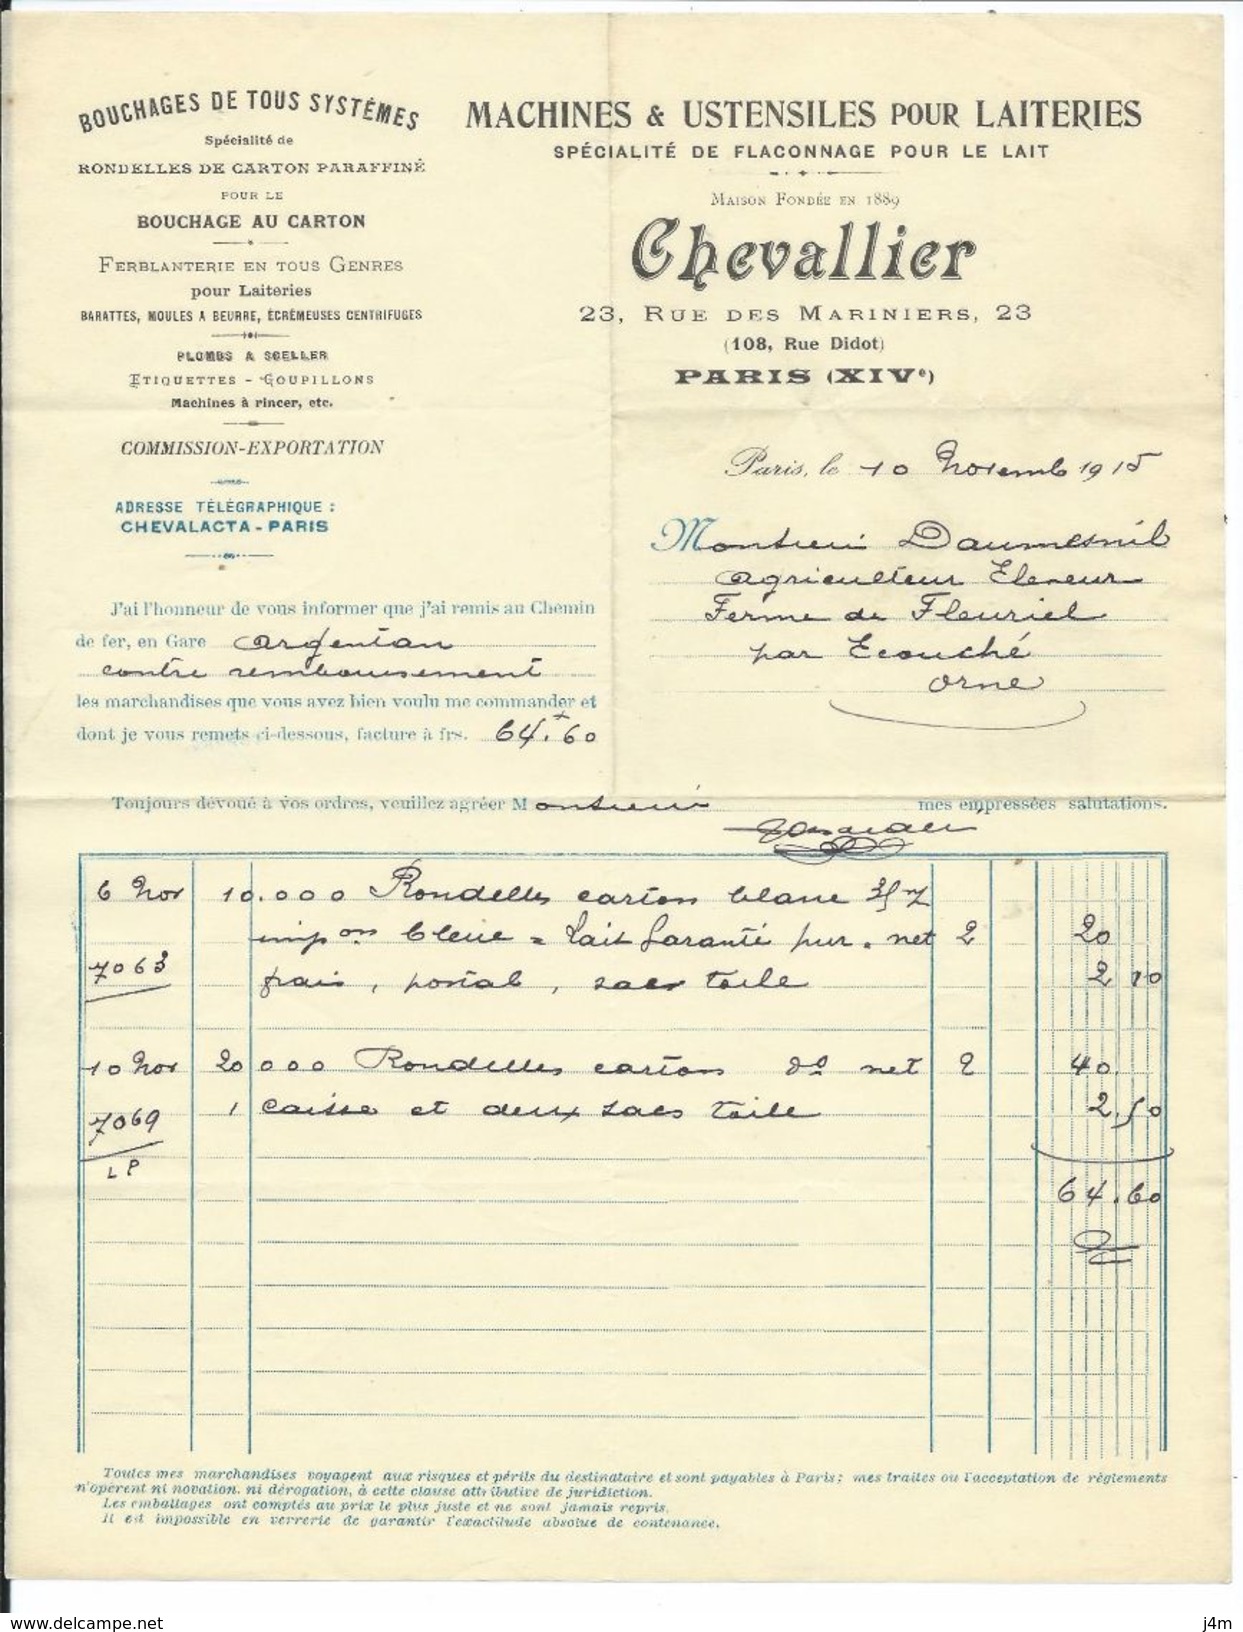 BOUCHAGES DE TOUS SYSTÈMES
Spécialité de
RONDELLES DE CARTON PARAFFINÉ
POUR LE
BOUCHAGE AU CARTON
FERBLANTERIE EN TOUS GENRES
pour Laiteries
BARATTES, MOULES A BEURRE, ÉCRÉMEUSES CENTRIFUGES
PLOMBS A SCELLER
ETIQUETTES - GOUPILLONS
Machines à rincer, etc.
COMMISSION-EXPORTATION
ADRESSE TÉLÉGRAPHIQUE :
CHEVALACTA - PARIS
MACHINES & USTENSILES POUR LAITERIES
SPÉCIALITÉ DE FLACONNAGE POUR LE LAIT
MAISON FONDÉE EN 1889
Chevallier
23, RUE DES MARINIERS, 23
(108, Rue Didot)
PARIS (XIVe)
Paris, le 10 Novemb 1915
Monsieur Daumesnil
Agriculteur Eleveur
Ferme de Fleuriel
par Ecouché
Orne
J'ai l'honneur de vous informer que j'ai remis au Chemin
de fer, en Gare Argentan
contre remboursement
les marchandises que vous avez bien voulu me commander et
dont je vous remets ci-dessous, facture à frs. 64.60
Toujours dévoué à vos ordres, veuillez agréer Monsieur mes empressées salutations.
6 Nov 10.000 Rondelles carton blanc
impon bleue = Lait Garanti pur. net 2 20
7063 frais, postal, sac toile 2 10
10 Nov 20 000 Rondelles carton do net 2 40
7069 1 caisse et deux sacs toile 2,50
LP
64.60
Toutes mes marchandises voyagent aux risques et périls du destinataire et sont payables à Paris; mes traites ou l'acceptation de règlements
n'opèrent ni novation, ni dérogation, à cette clause attributive de juridiction.
Les emballages ont comptés au prix le plus juste et ne sont jamais repris.
Il est impossible en verrerie de garantir l'exactitude absolue de contenance.
www.delcampe.net
j4m